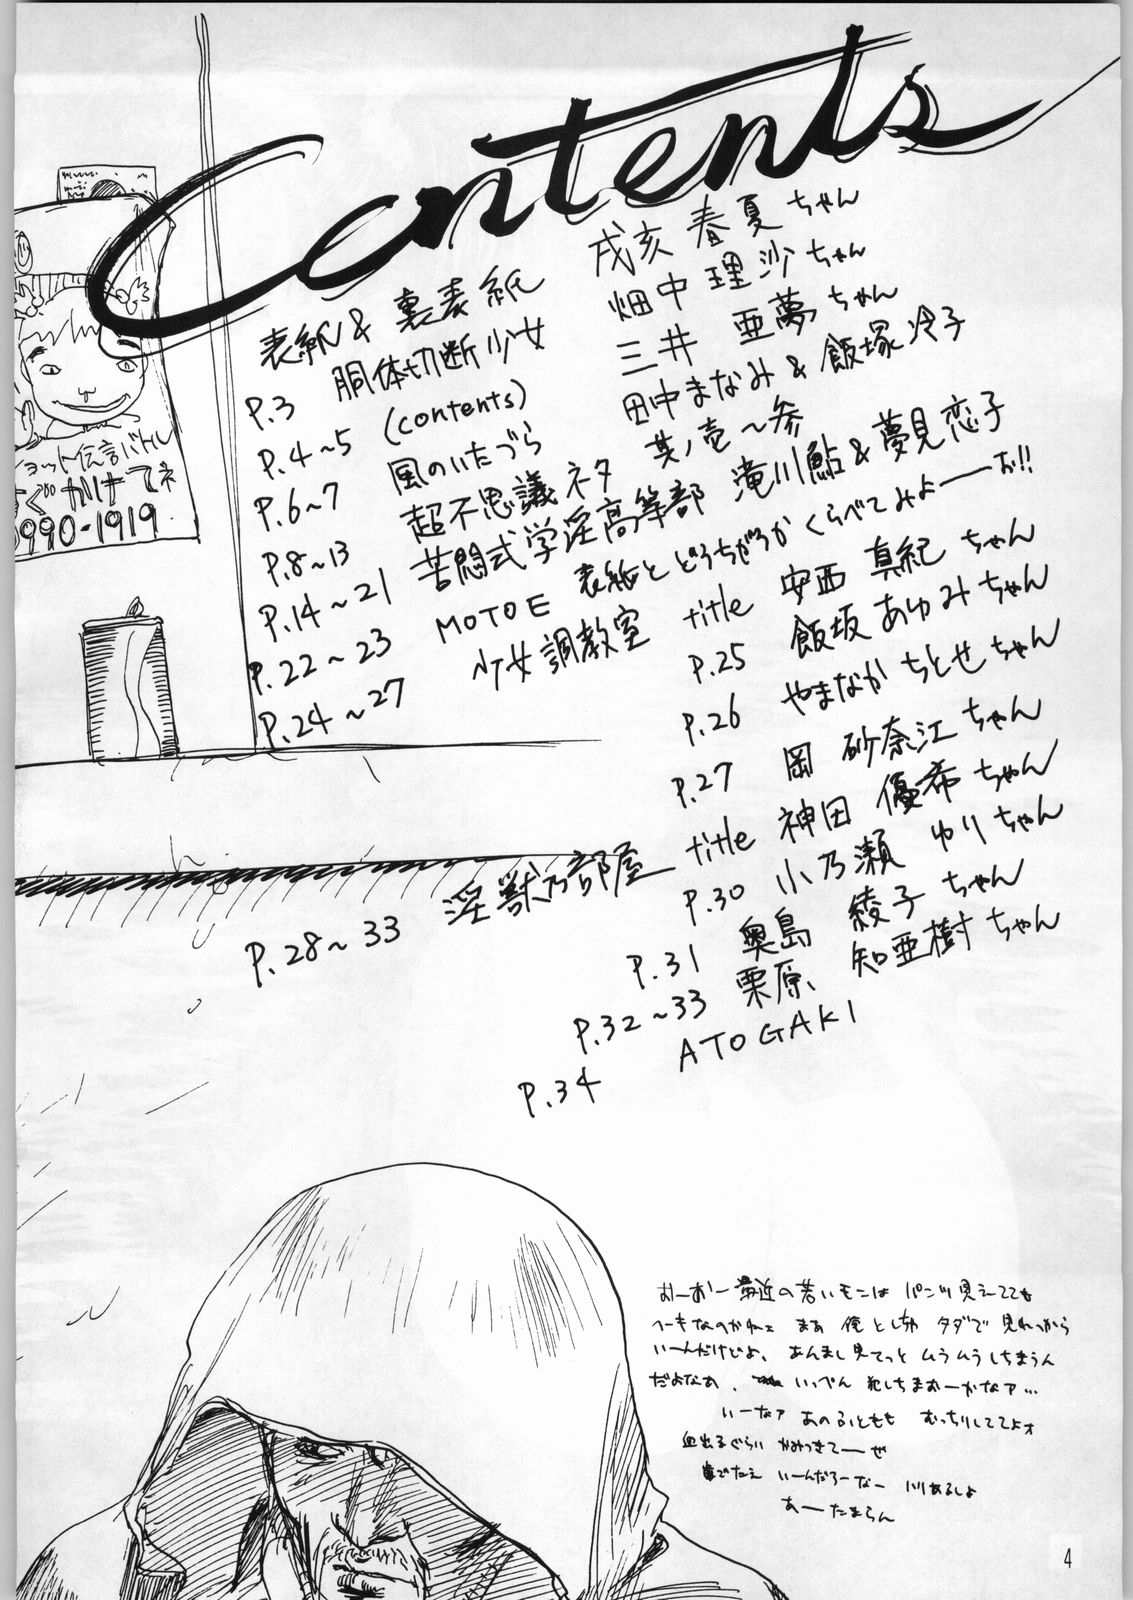 Contents
表紙& 裏表紙 戌亥 春夏ちゃん
P.3 胴体切断少女 畑中 理沙ちゃん
P.4～5 (contents) 三井 亜夢ちゃん
P.6～7 風のいたづら 田中まなみ&飯塚冷子
P.8～13 超不思議ネタ 其ノ壱～参
P.14～21 苦悶式学淫高等部 滝川鮎&夢見恋子
P.22～23 MOTOE 表紙とどっちがろかくらべてみよーーお!!
P.24～27 少女調教室 title 安西 真紀ちゃん
P.25 飯坂あゆみちゃん
P.26 やまなか ちとせちゃん
P.27 岡 砂奈江ちゃん
P.28～33 淫獣乃部屋 title 神田 優希ちゃん
P.30 小乃瀬 ゆりちゃん
P.31 奥島 綾子ちゃん
P.32～33 栗原、知亜樹ちゃん
P.34 ATOGAKI
ョット伝言バトル
すぐかけてネ
0990-1919
おーおー最近の若いモンは パンツ見えてても
ヘーキなのかねェ まあ 俺としちゃ タダで 見れっから
いーんだけどよ、あんまし見てっと ムラムラしちまうん
だよなあ、いっぺん 犯しちまおーかなァ…
いーなァ あのふともも むっちりしててよォ
血出るぐらい かみつきてーぜ
いーんだろーなー
あーたまらん
4